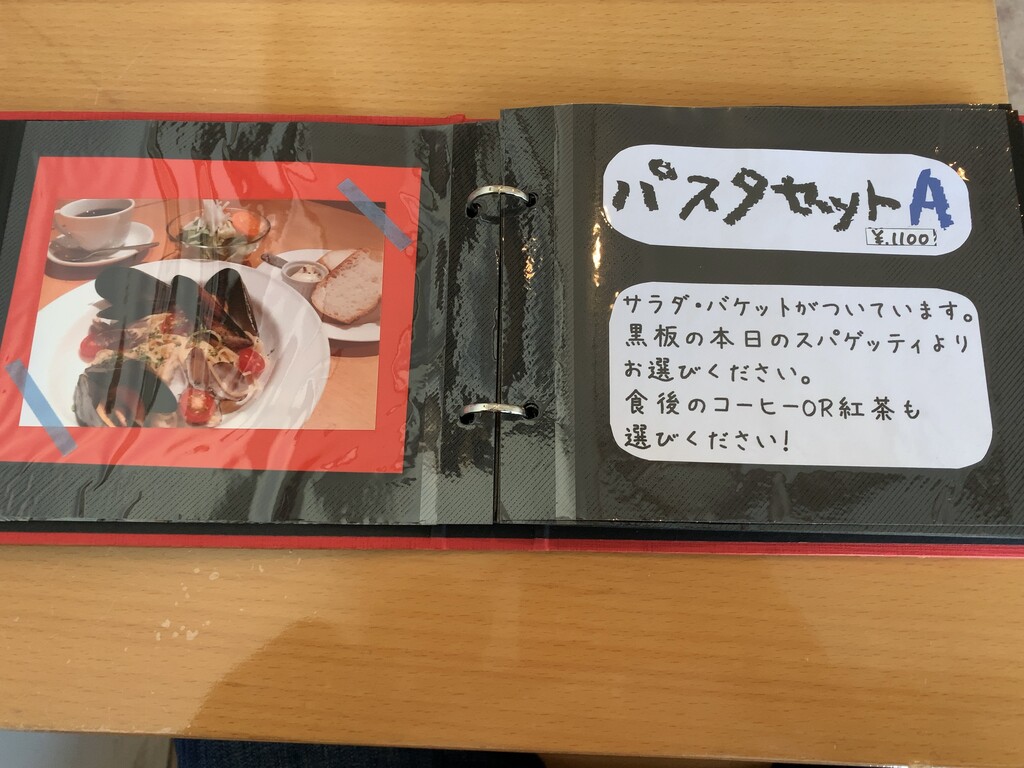 パスタセットA
¥.1100
サラダ・バケットがついています。
黒板の本日のスパゲッティより
お選びください。
食後のコーヒーOR紅茶も
選びください!